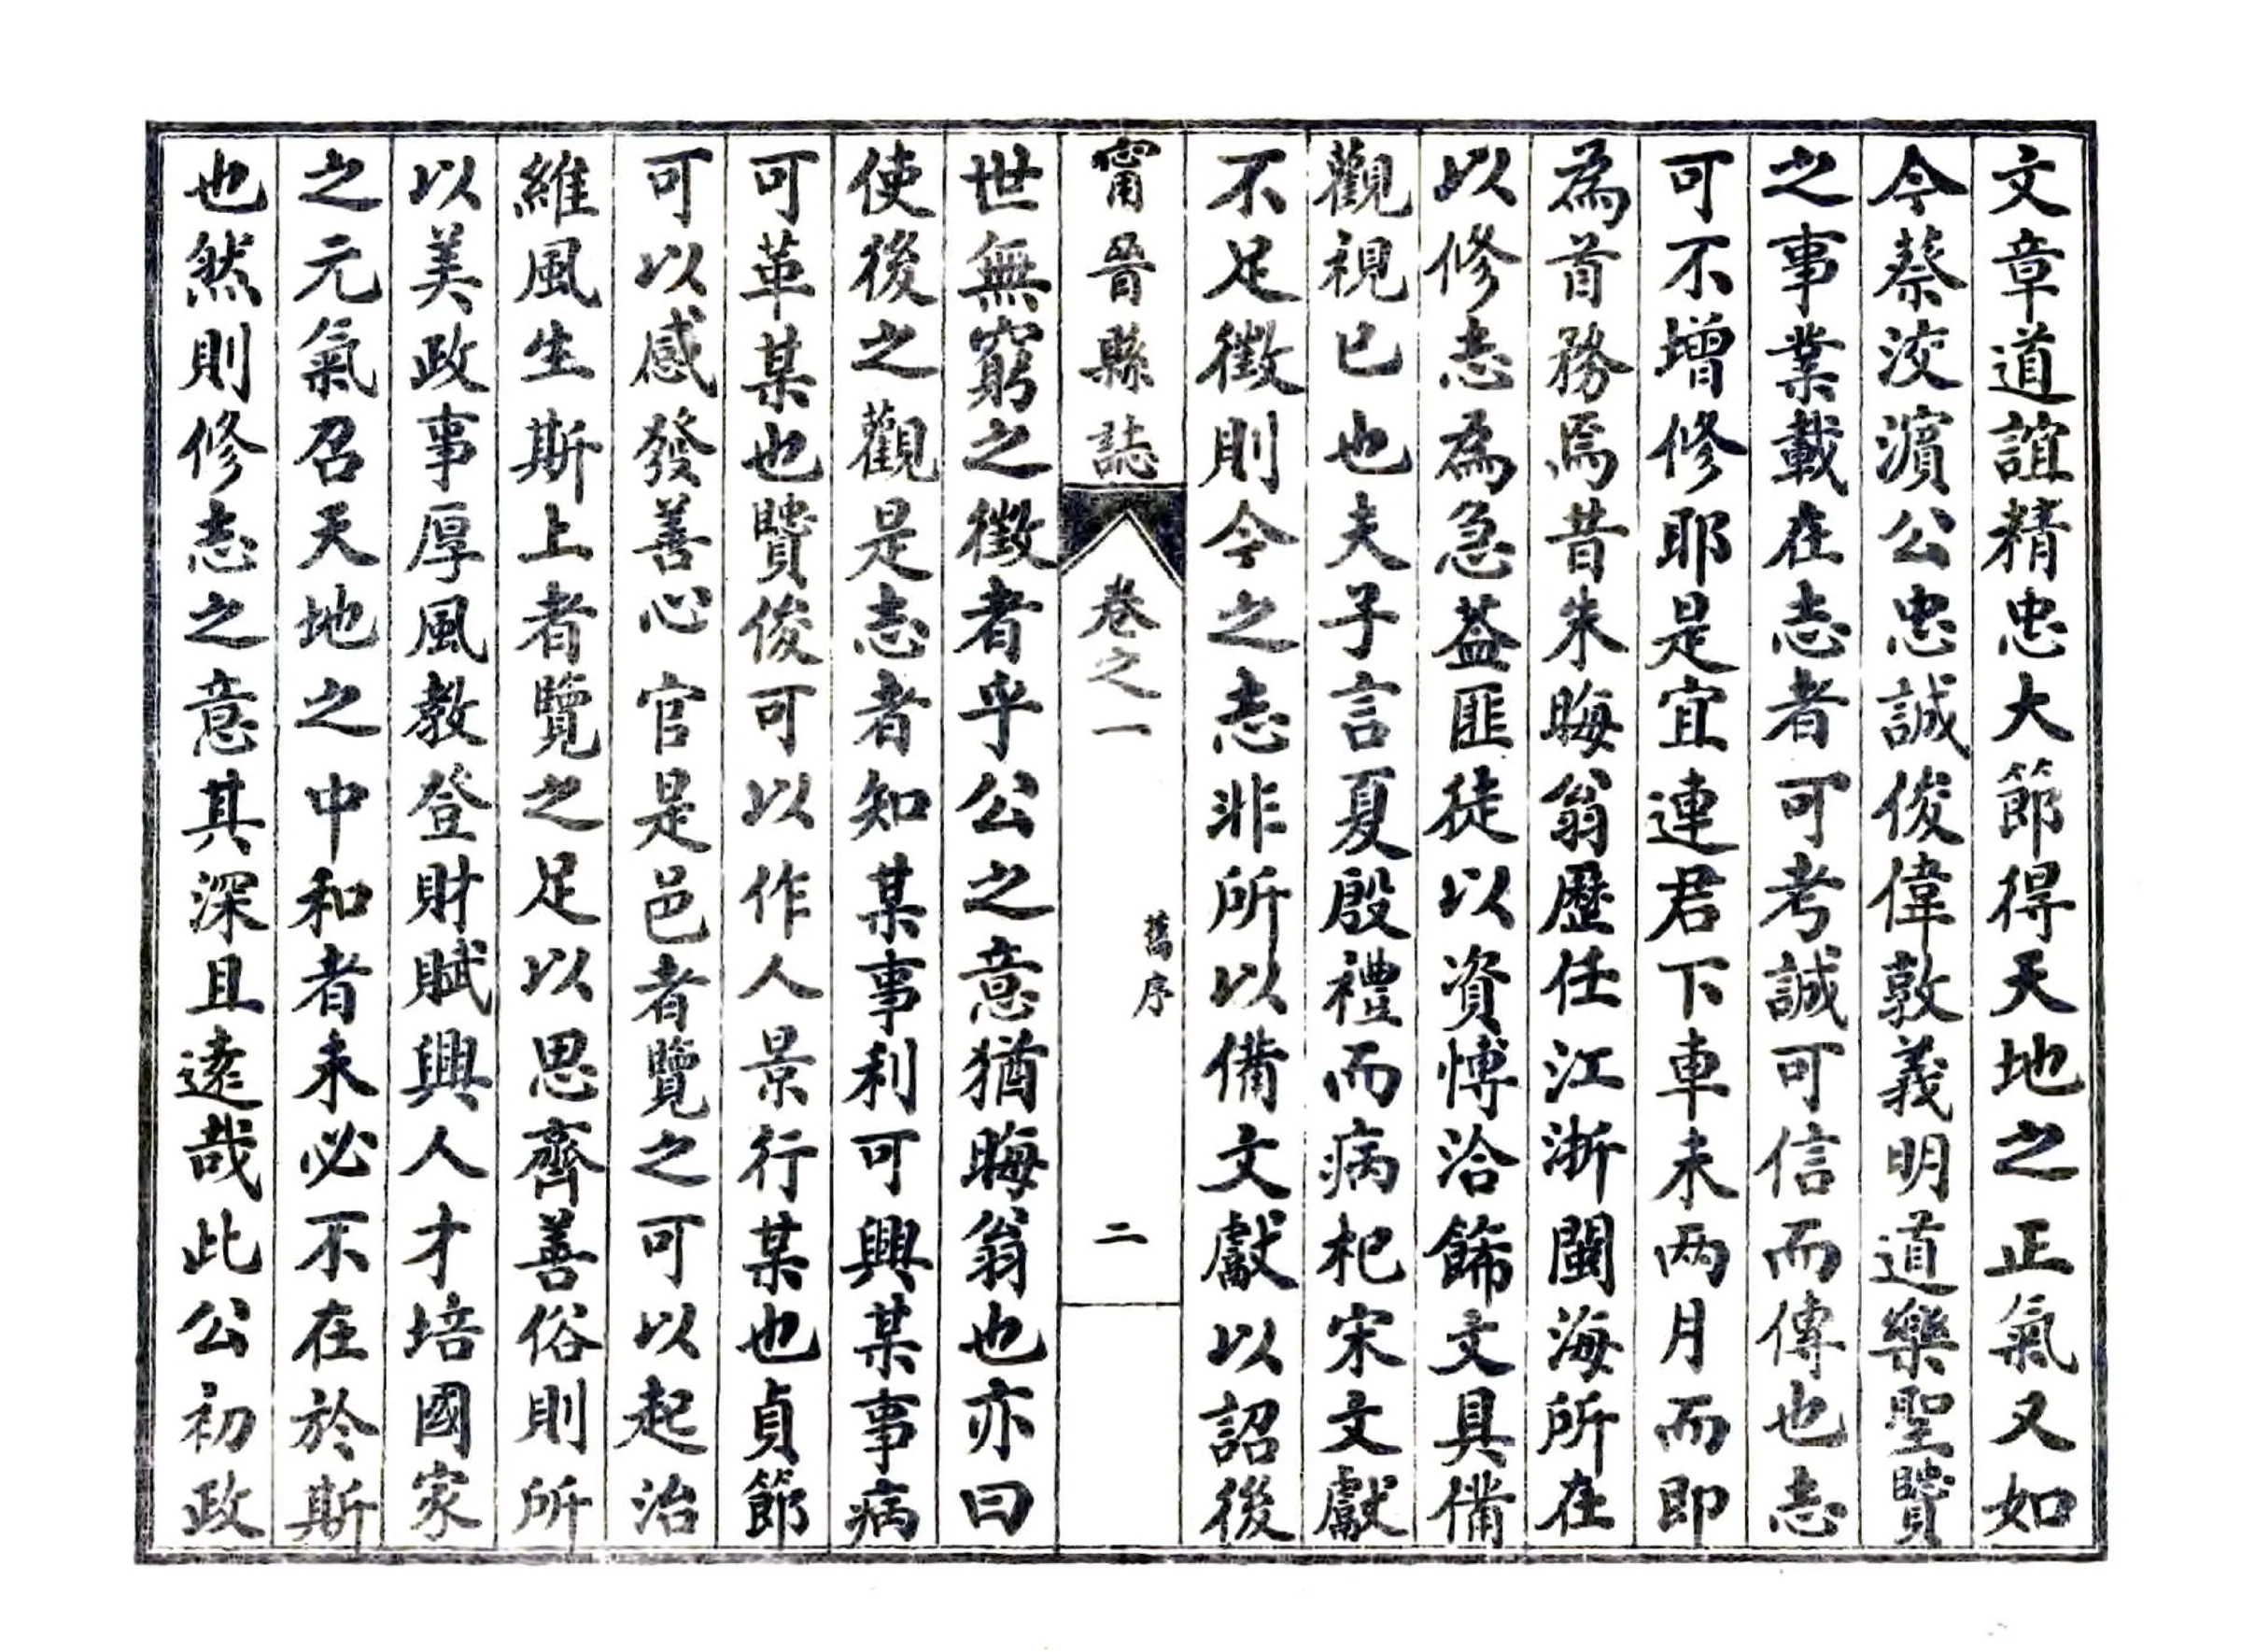 文章道誼精忠大節得天地之正氣又如
今蔡洨濵公忠誠俊偉敦義明道樂聖贒
之事業載在志者可考誠可信而傳也志
可不增修耶是宜連君下車未两月而即
為首務焉昔朱晦翁歷任江浙閩海所在
以修志為急葢匪徒以資愽洽餙文具備
觀視已也夫子言夏殷禮而病杞宋文獻
不足徵則今之志非所以備文獻以詔後
甯晉縣誌 卷之一 舊序 二
世無窮之徵者乎公之意猶晦翁也亦曰
使後之觀是志者知某事利可興某事病
可革某也贒俊可以作人景行某也貞節
可以感發善心官是邑者覽之可以起治
維風生斯上者覽之足以思齊善俗則所
以美政事厚風教登財賦興人才培國家
之元氣召天地之中和者未必不在於斯
也然則修志之意其深且逺哉此公初政